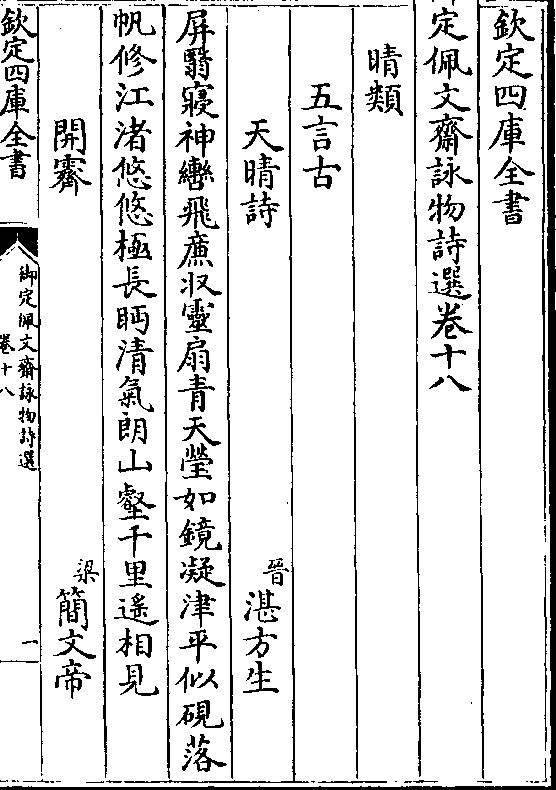 欽定四庫全書
定佩文齋詠物詩選卷十八
晴類
五言古
天晴詩 晉湛方生
屏翳寢神轡飛廉収靈扇青天瑩如鏡凝津平似硯落
帆修江渚悠悠極長眄清氣朗山壑千里遙相見
開霽 梁簡文帝
欽定四庫全書
御定佩文齋詠物詩選
卷十八
一